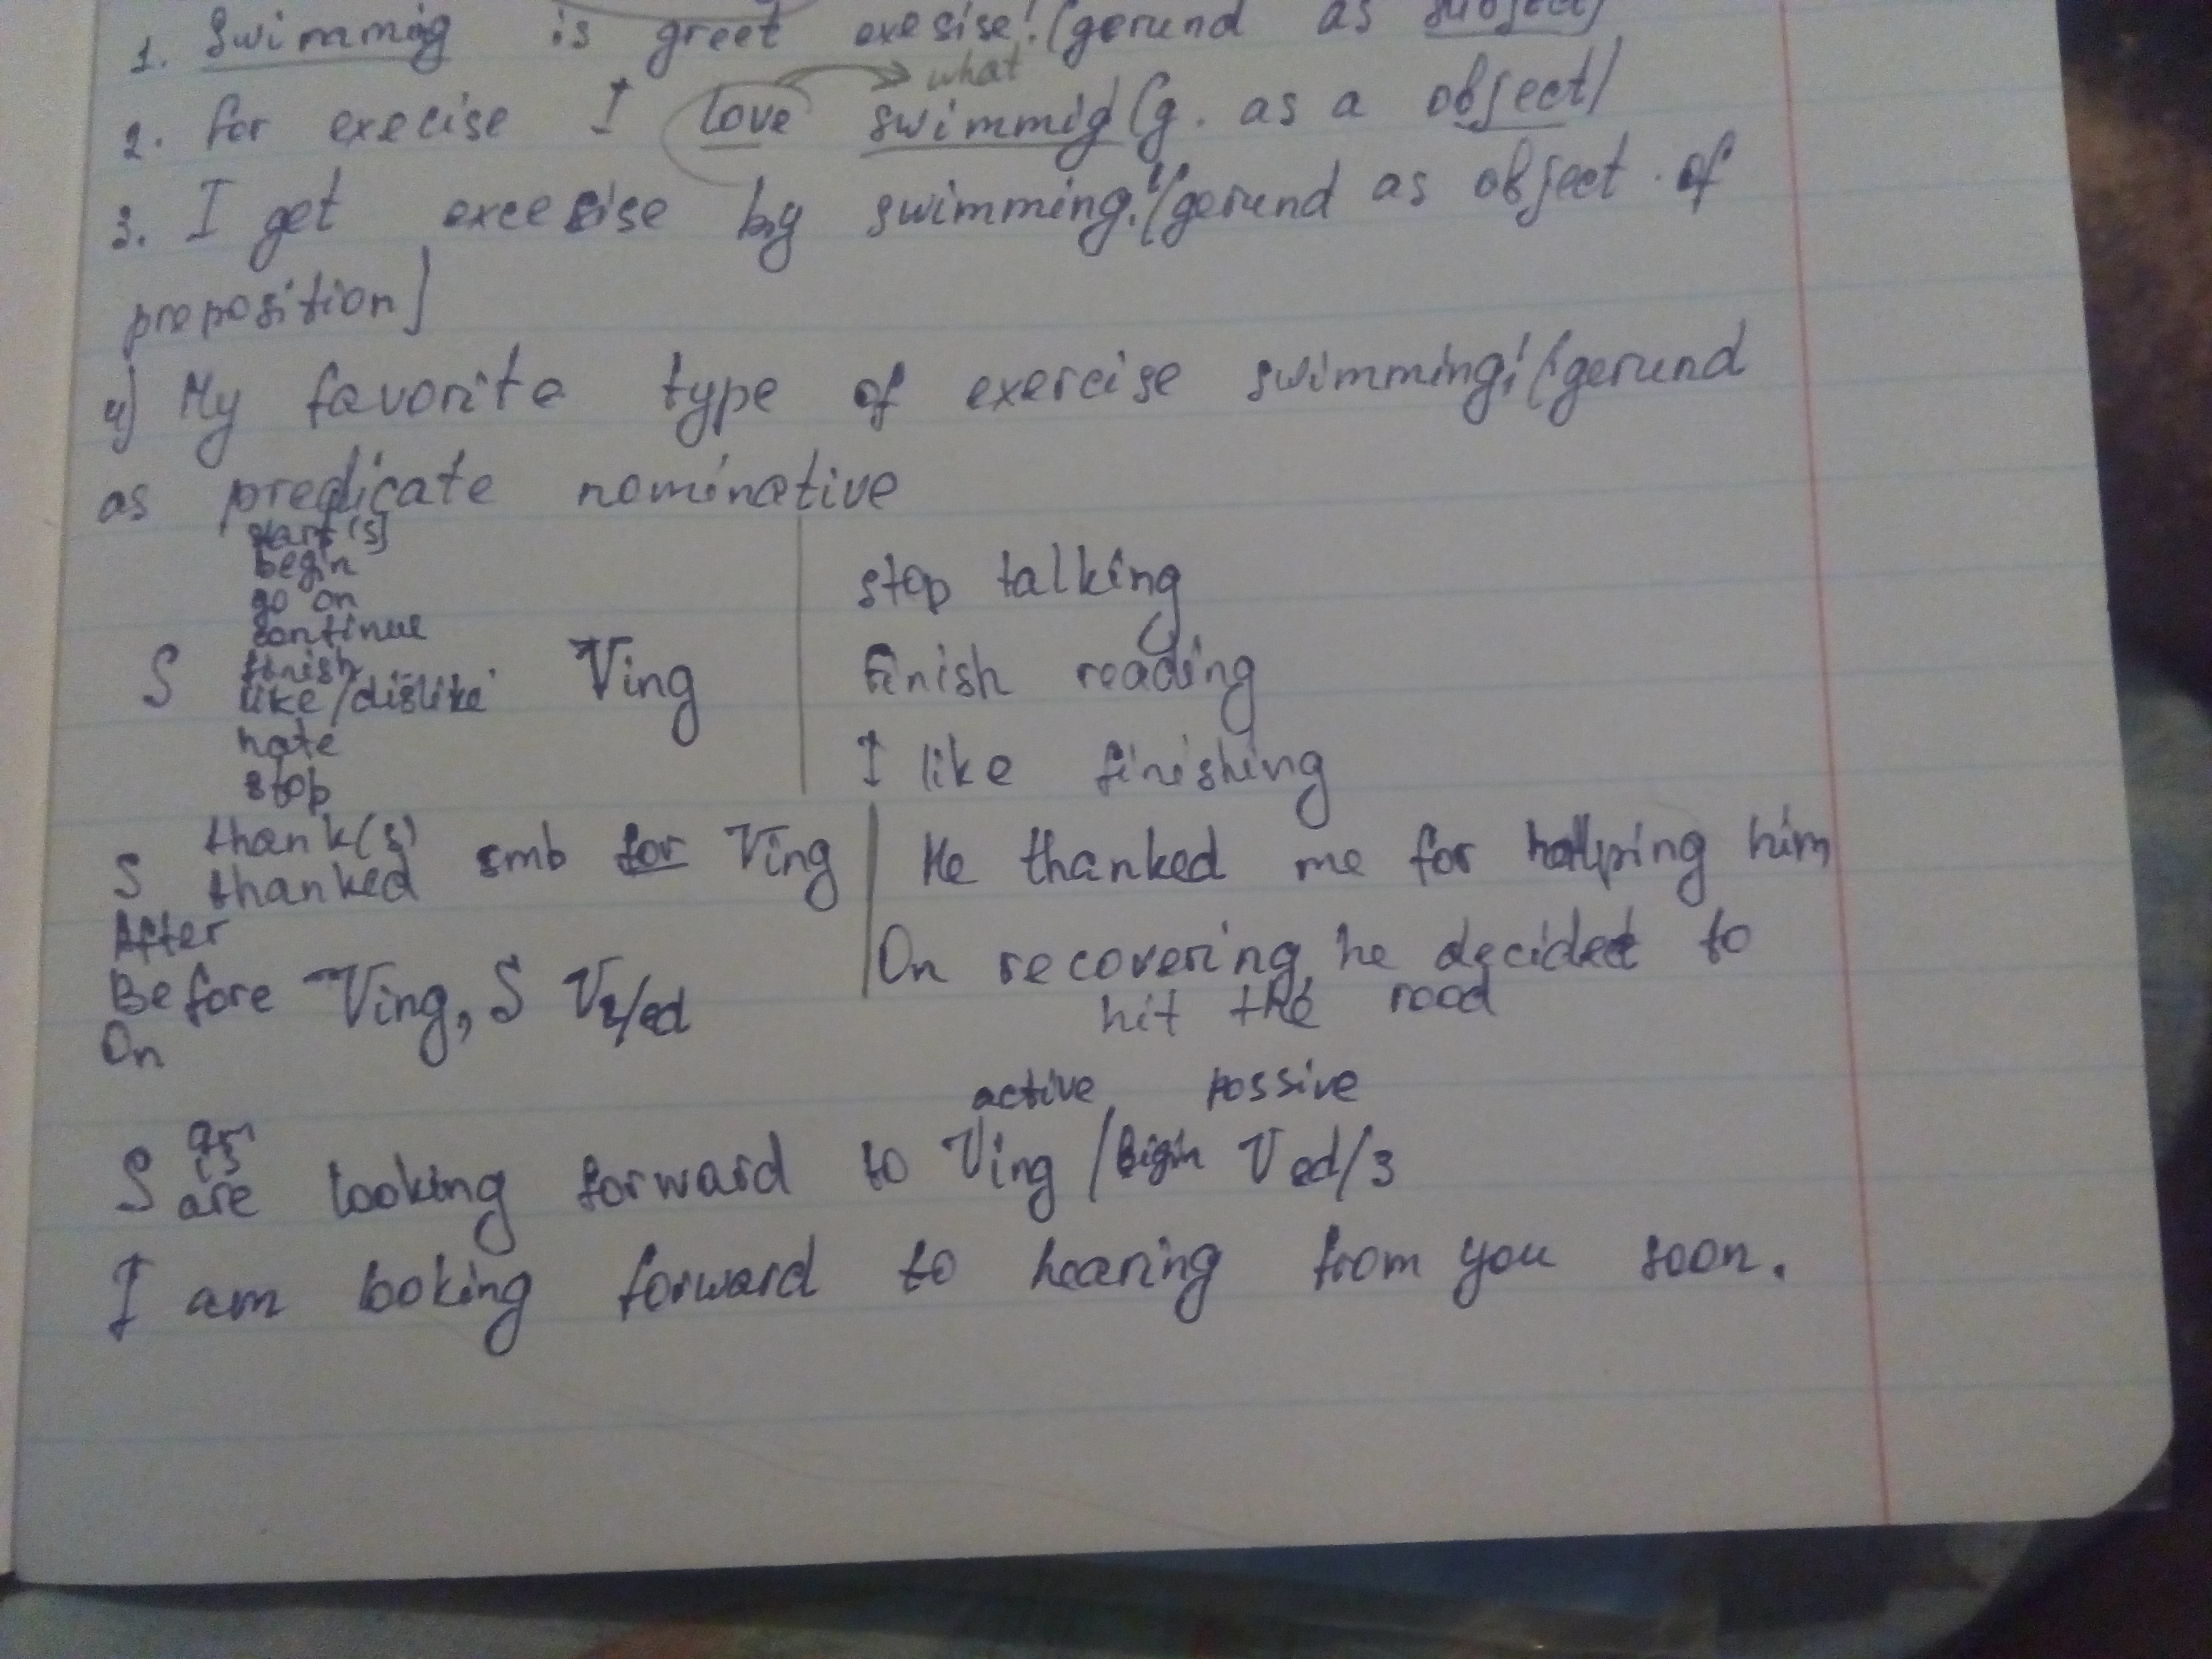 1. Swimmig is greet exesise! (gerund as subject)
what
2. for execise I love swimmig (g. as a object)
3. I get excesise by swimming!" (gerund as object of
preposition]
4) My favorite type of exercise swimming! (gerund
as predicate nominative
start(s)
begin
go on
continue
finish
like/dislike
hate
stop
S Ving
stop talking
finish reading
I like finishing
S thank(s)
thanked smb for Ving
He thanked me for him
After
Before Ving, S V2/ed
On
On recovering, he decidet to
hit the rood
active possive
S
is
are looking forward to Ving / Ved/3
I am looking forward to hearing from you soon.